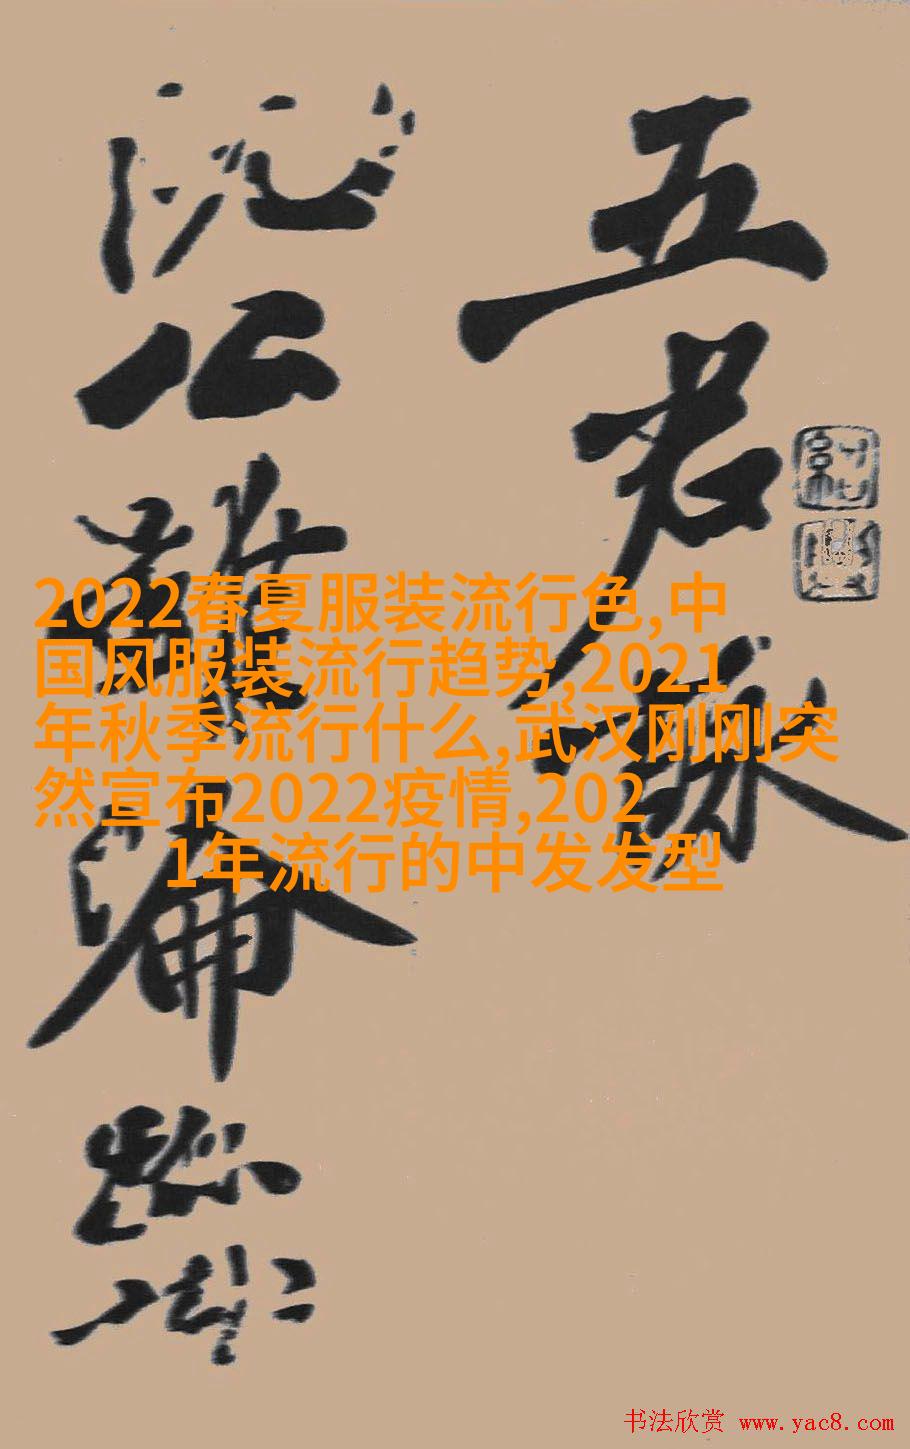 五君咏
阮公虽沦迹
2022春夏服装流行色,中
国风服装流行趋势,2021
年秋季流行什么,武汉刚刚突
然宣布2022疫情,202
1年流行的中发发型
书法欣赏 www.yac8.com